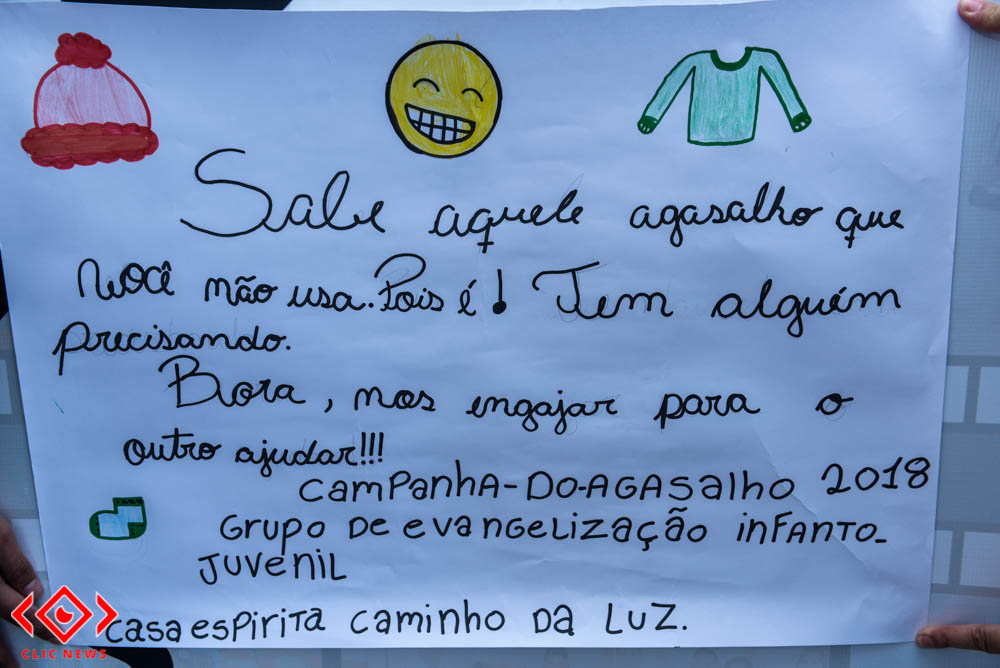 Sabe aquele agasalho que
você não usa. Pois é! Tem alguém
precisando.
Bora, nos engajar para o
outro ajudar!!!
CAMPANHA-DO-AGASALHO 2018
GRUPO DE EVANGELIZAÇÃO INFANTO-
JUVENIL
CASA ESPIRITA CAMINHO DA LUZ.
CLIC NEWS